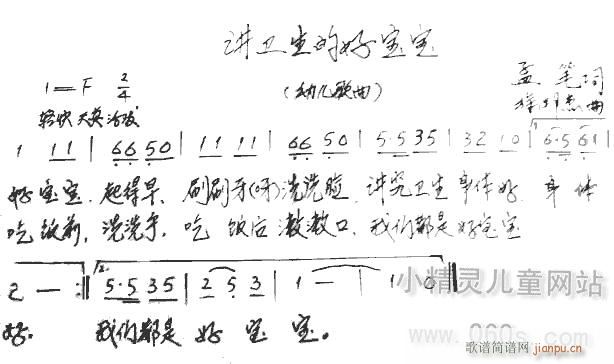 讲卫生的好宝宝
1=F 2/4
(幼儿歌曲)
孟 笔词
曲
轻快 天真 活泼
1 11 | 66 50 | 11 11 | 66 50 | 5·5 35 | 32 10 | 1. 6·5 61 |
好宝宝 起得早, 刷刷牙(呀)洗洗脸 讲究卫生身体好 身体
吃饭前,洗洗手,吃饭后漱漱口,我们都是好宝宝
2 — :‖ 2. 5·5 35 | 2 5 3 | 1 — | 1 0 ‖
好. 我们都是 好 宝 宝。
小精灵儿童网站
www.060s.com
歌谱简谱网
jianpu.cn